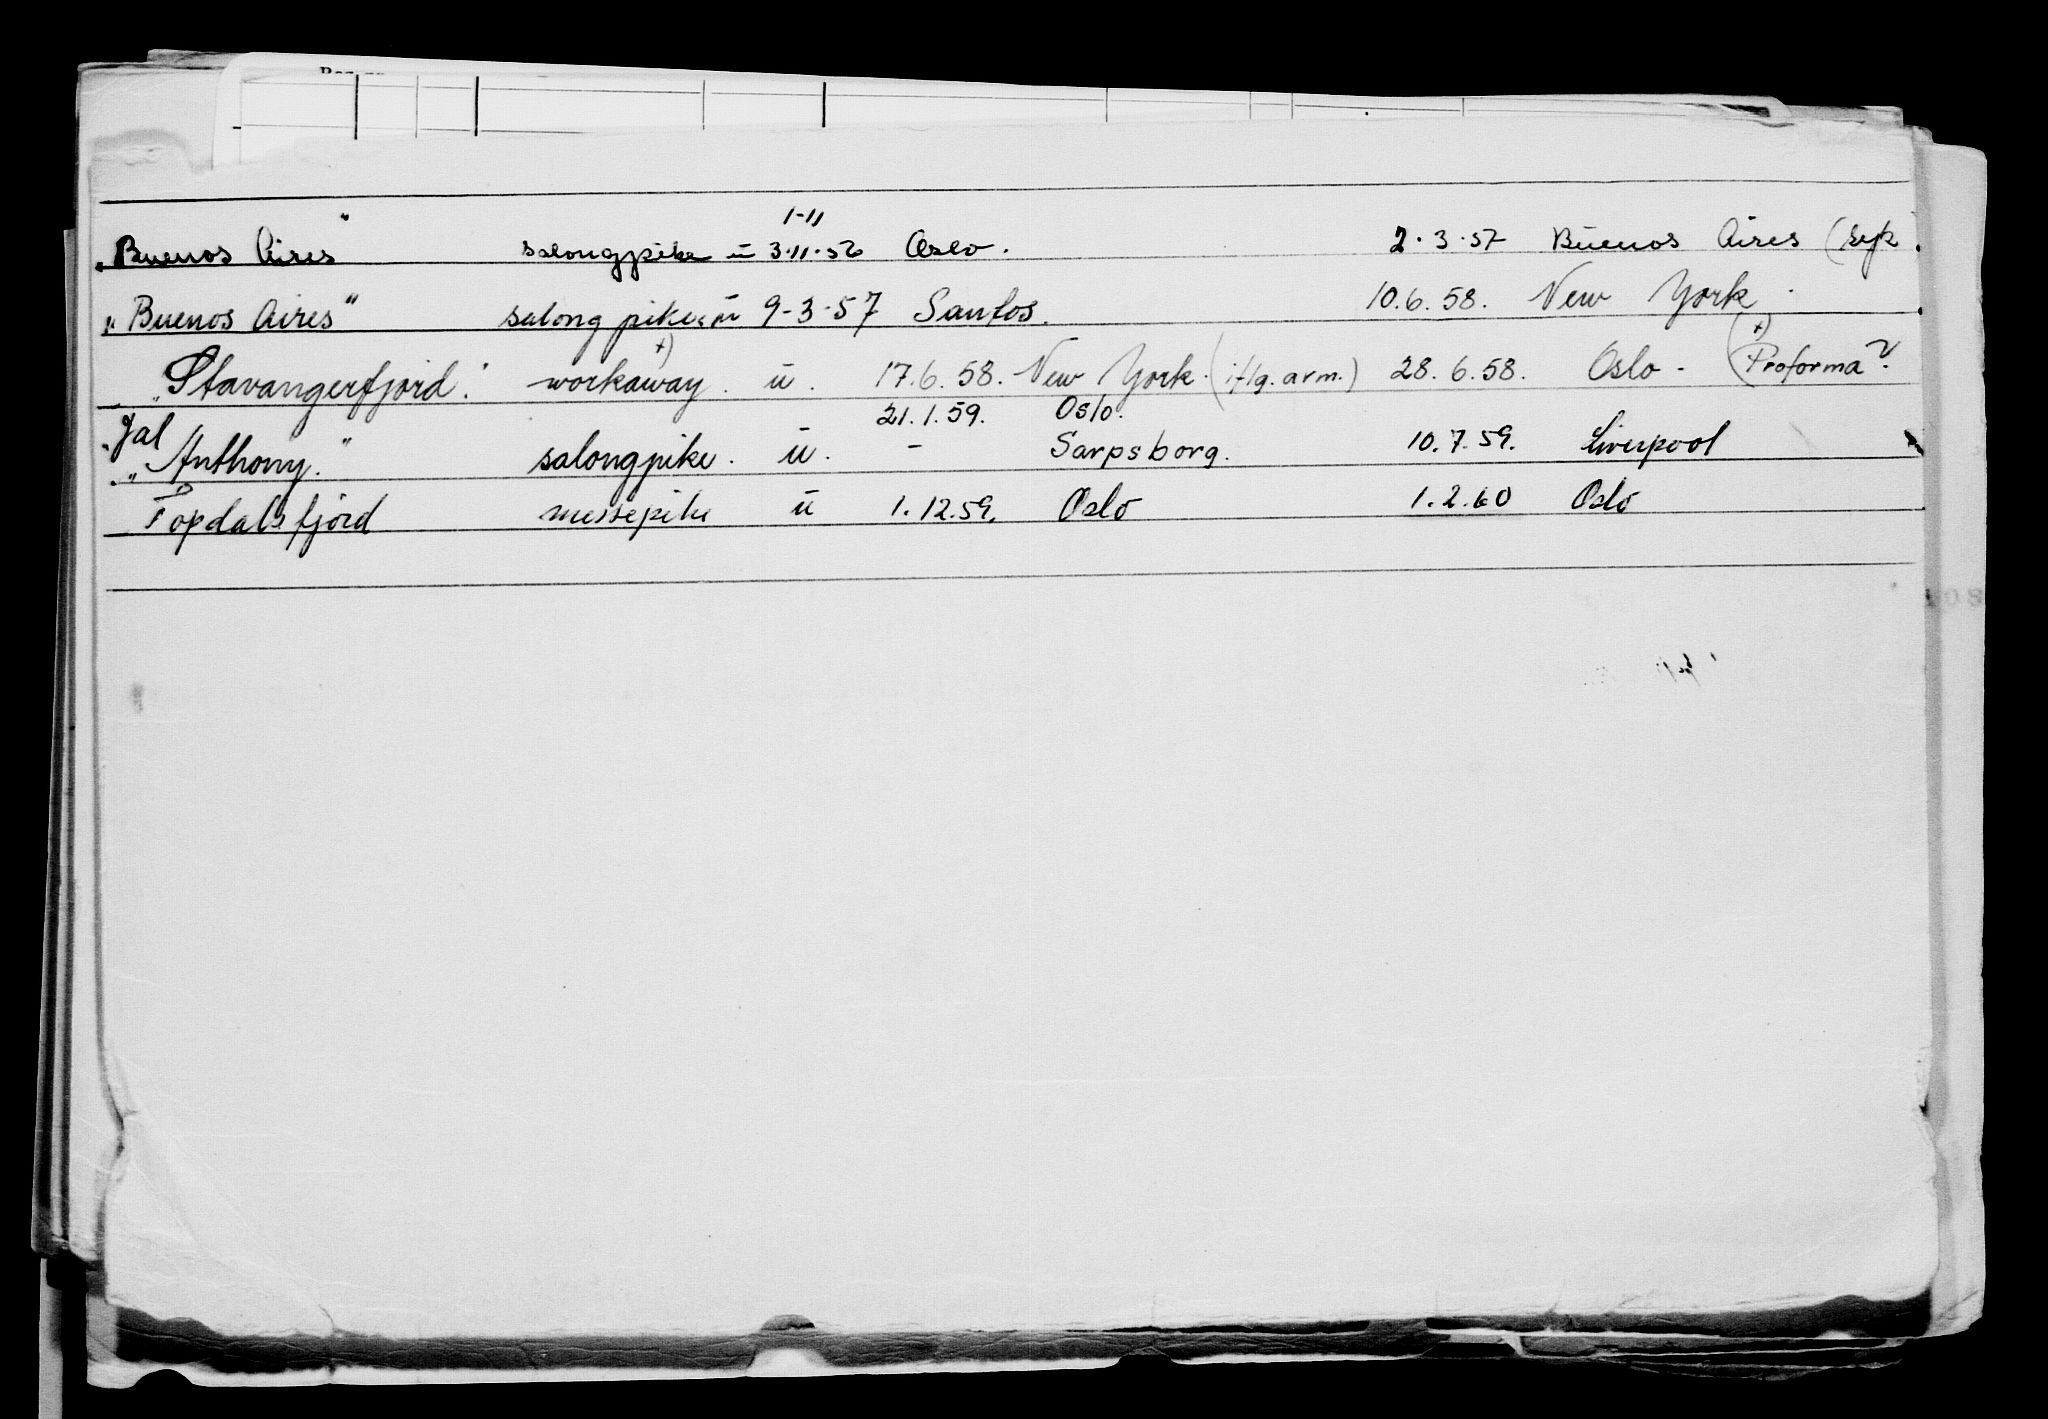 1-11
"Buenos Aires" salongpike ū 3.11.56 Oslo. 2.3.57 Buenos Aires (syk
"Buenos Aires" salongpike ū 9-3-57 Santos. 10.6.58. New York.
"Stavangerfjord." workaway +) ū. 17.6.58. New York (iflg. arm.) 28.6.58. Oslo - (+) Proforma?
21.1.59. Oslo.
"Jal Anthony." salongpike. ū. - Sarpsborg. 10.7.59. Liverpool
Topdalsfjord messepike ū 1.12.59. Oslo 1.2.60 Oslo